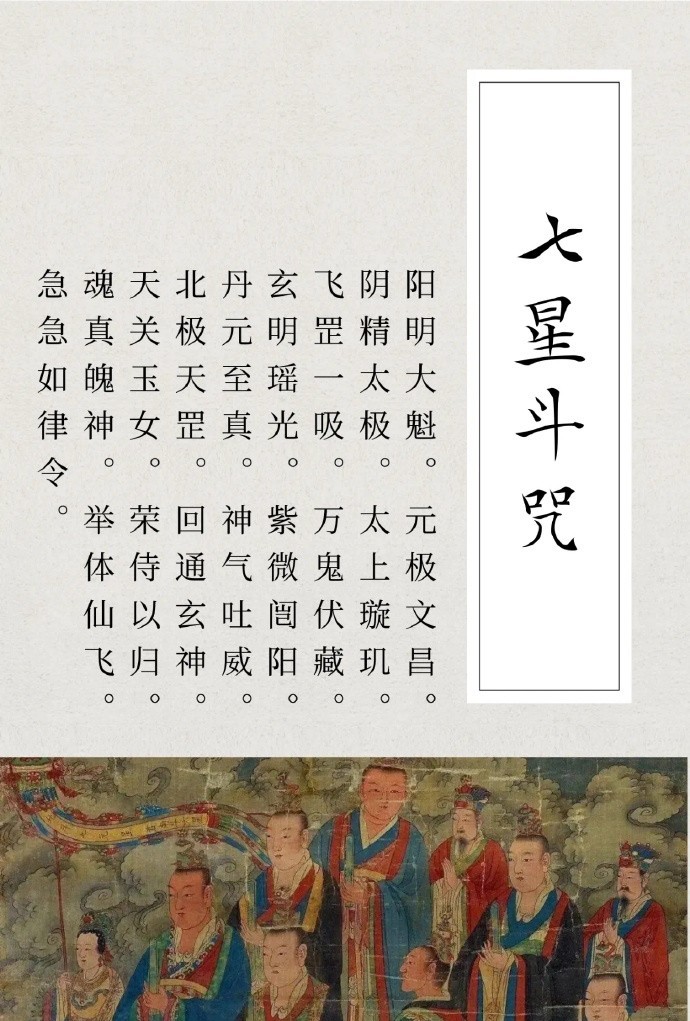 七星斗咒
阳明大魁。元极文昌。
阴精太极。太上璇玑。
飞罡一吸。万鬼伏藏。
玄明瑶光。紫微闿阳。
丹元至真。神气吐威。
北极天罡。回通玄神。
天关玉女。荣侍以归。
魂真魄神。举体仙飞。
急急如律令。